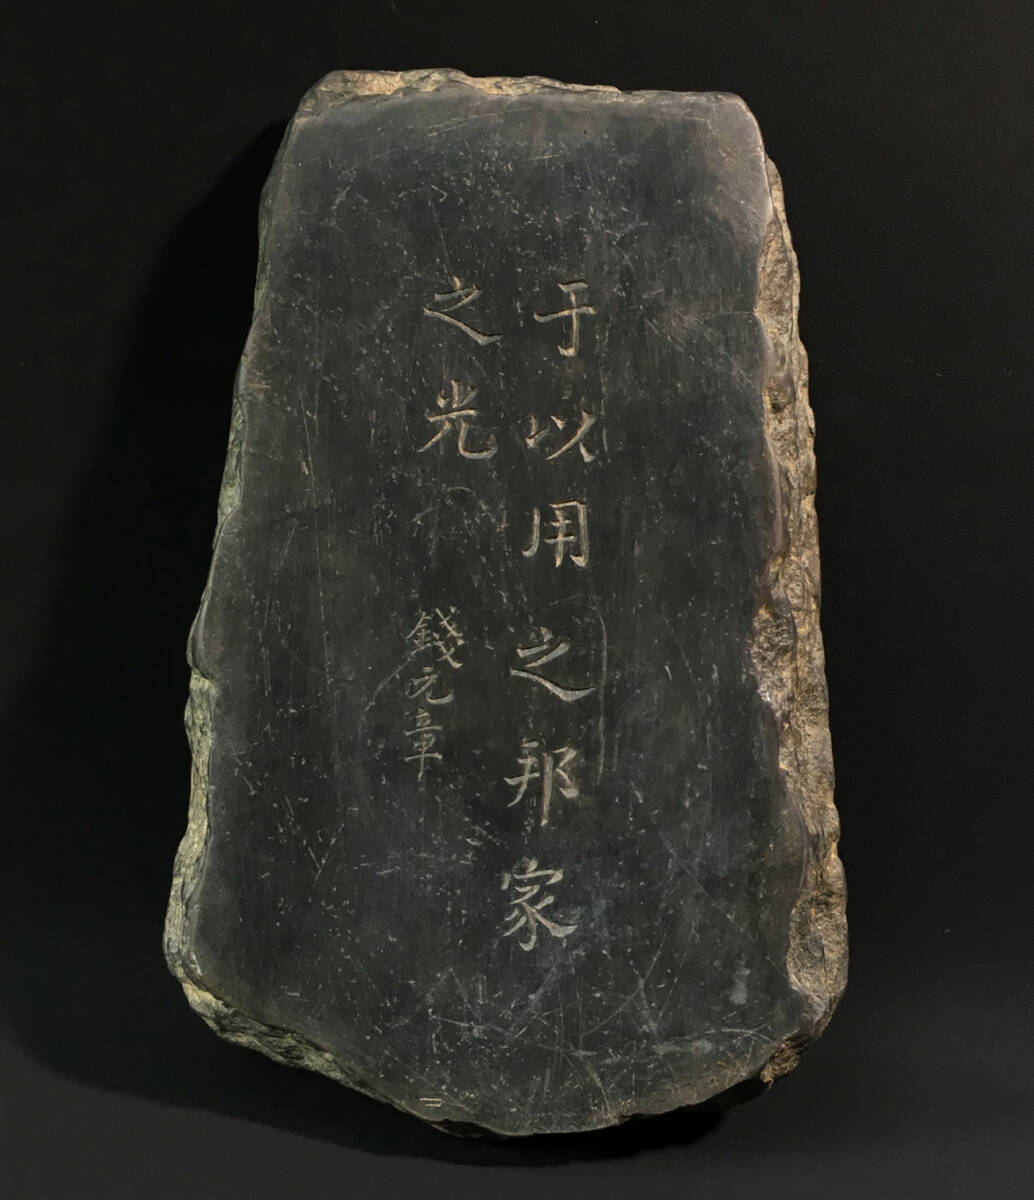 于以用之邦家
之光
錢元章